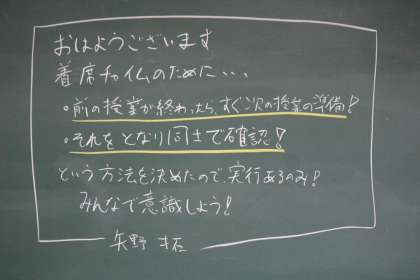 おはようございます
着席チャイムのために・・・
・前の授業が終わったら、すぐ次の授業の準備!
・それをとなり同士で確認!
という方法を決めたので実行あるのみ!
みんなで意識しよう!
矢野 拓